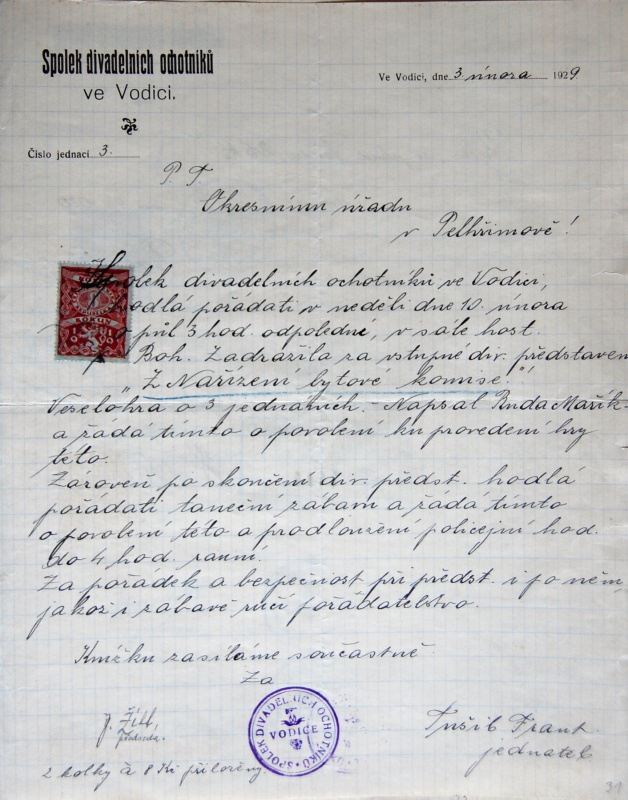 Spolek divadelních ochotníků
ve Vodici.
Ve Vodici, dne 3. února 1929.
Číslo jednací 3.
P. T.
Okresnímu úřadu
v Pelhřimově!
Spolek divadelních ochotníků ve Vodici,
hodlá pořádati v neděli dne 10. února
o půl 3 hod. odpoledne, v sále host.
p. Boh. Zadražila za vstupné div. představení
„Z Nařízení bytové komise."!
Veselohra o 3 jednáních. - Napsal Ruda Mařík-
a řádá tímto o povolení ku provedení hry
této.
Zároveň po skončení div. předst. hodlá
pořádati taneční zábavu a řádá tímto
o povolení této a prodloužení policejní hod.
do 4 hod. ranní.
Za pořádek a bezpečnost při předst. i po něm,
jakož i zábavě ručí pořádatelstvo.
Knížku zasíláme součastně.
Za
předseda.
SPOLEK DIVADELNÍCH OCHOTNÍKŮ
VODICE
Frant.
jednatel
2 kolky à 8 Kč přiloženy.
31